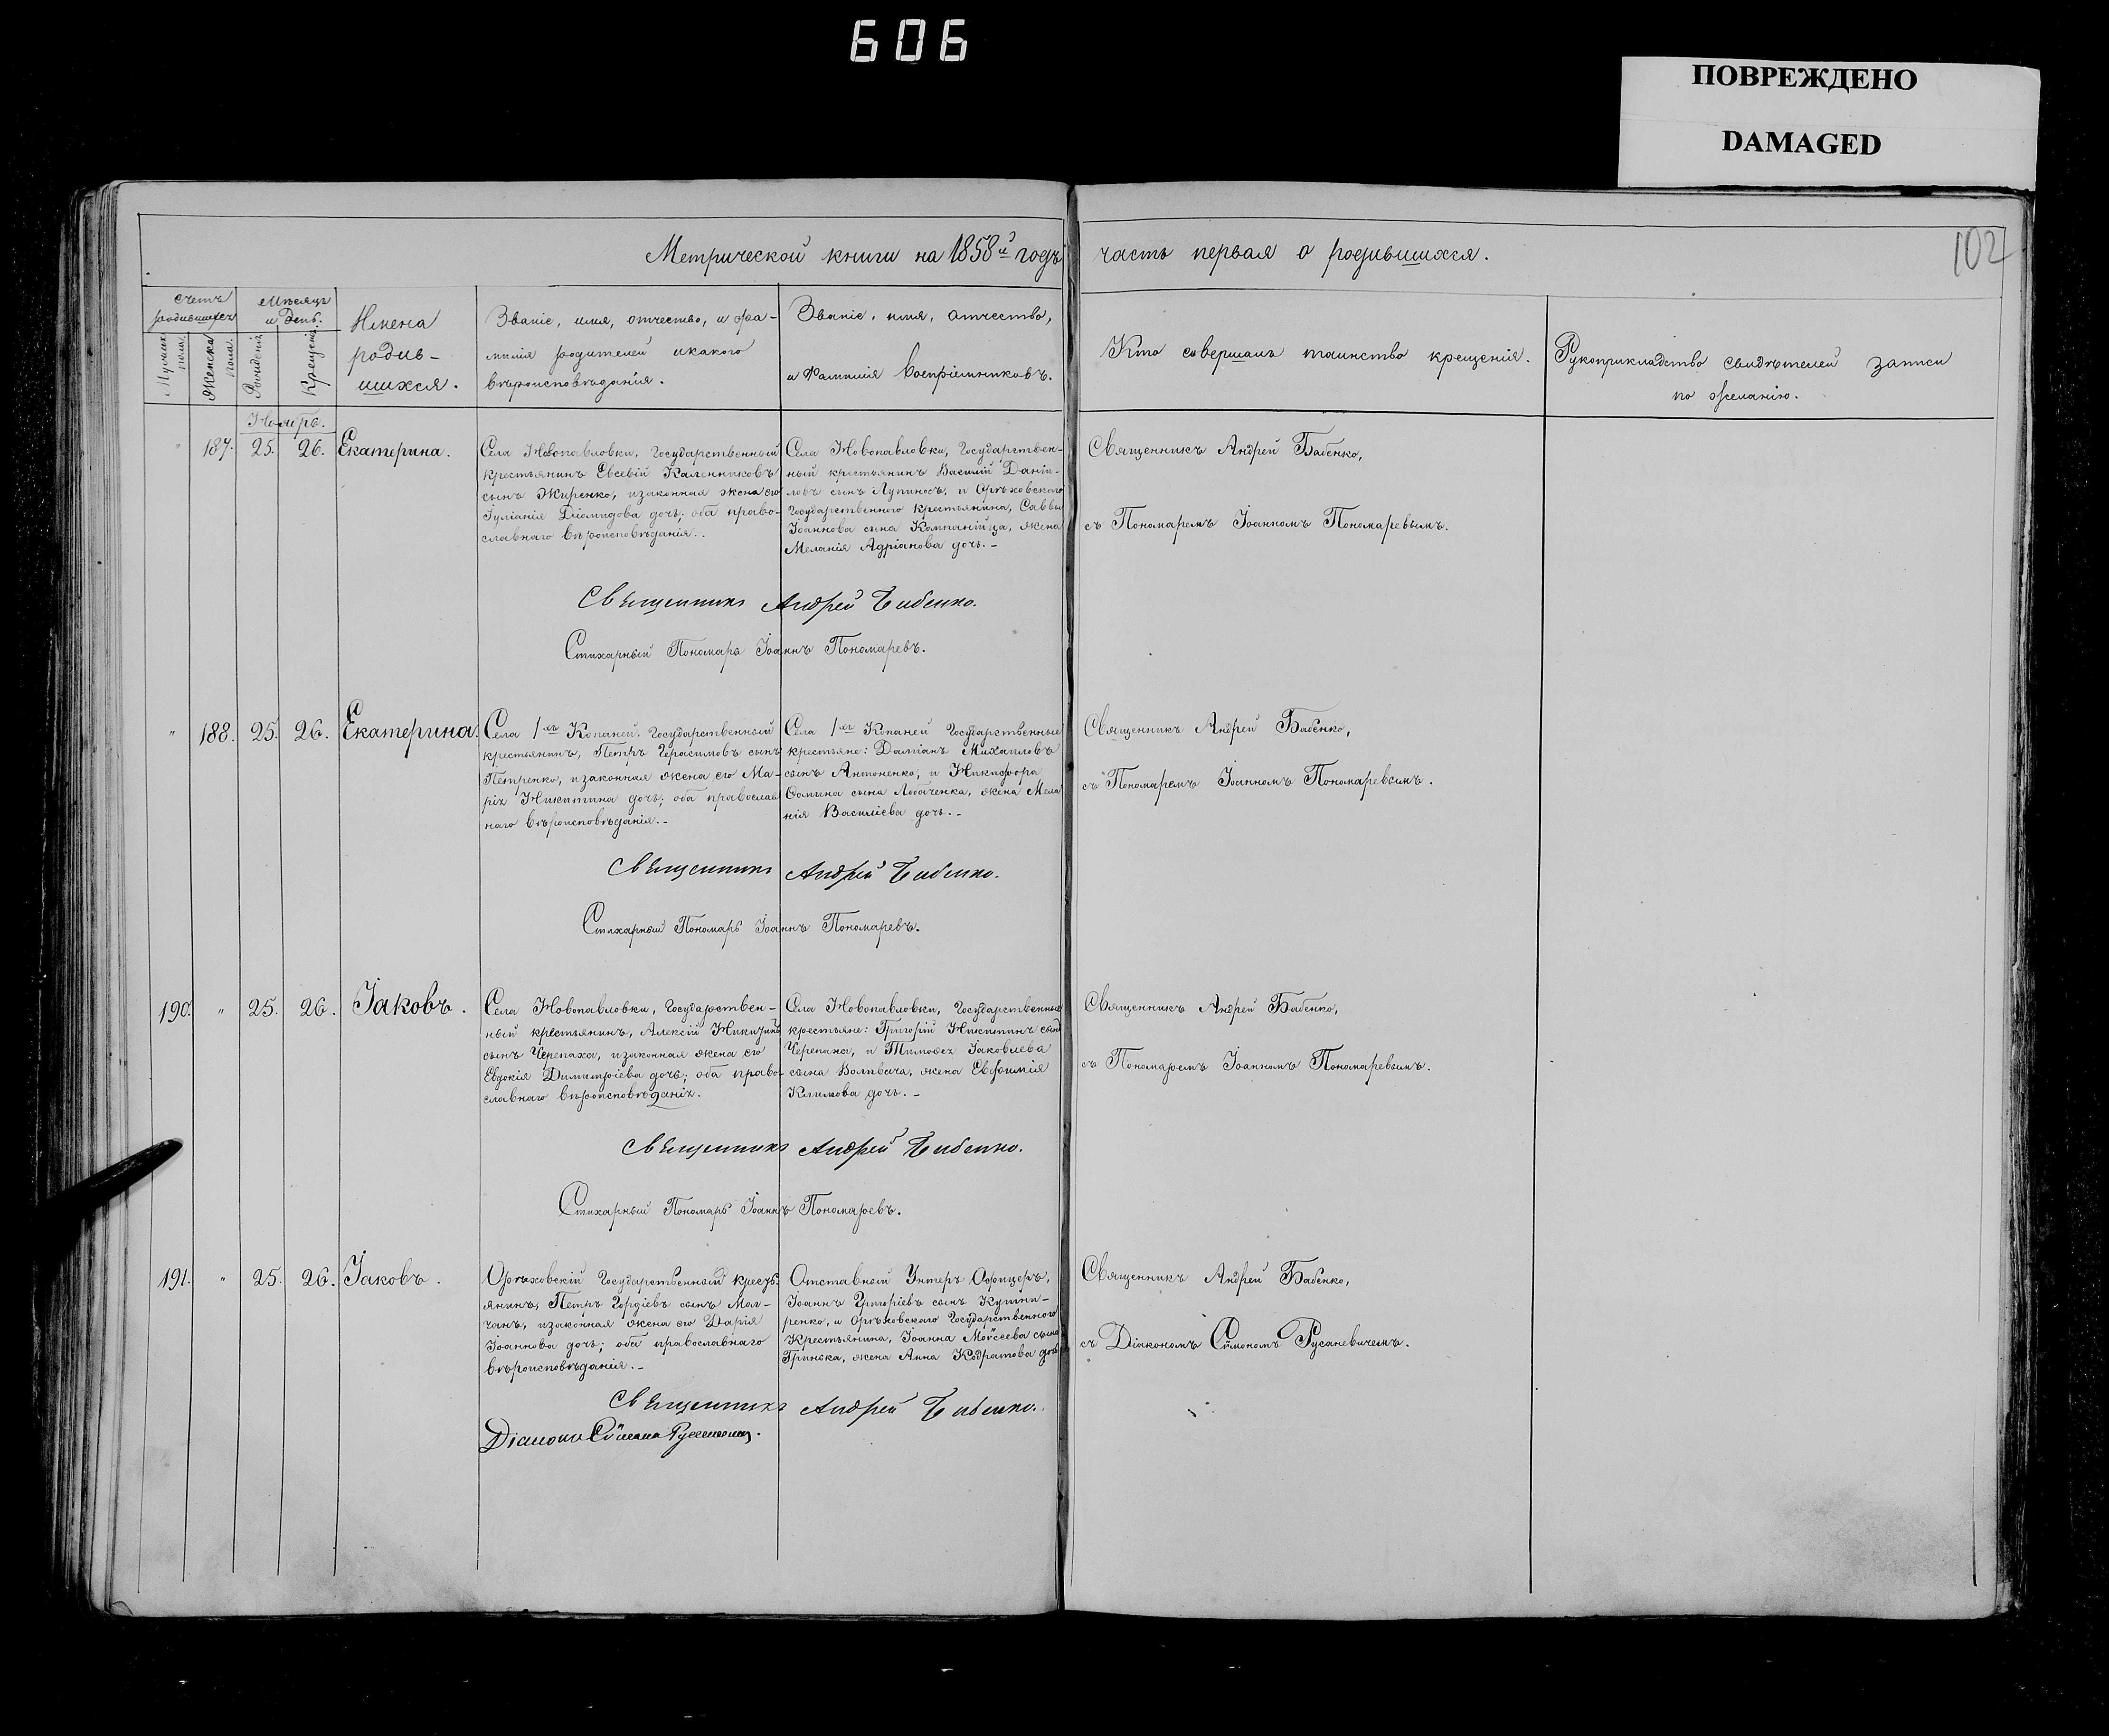 606
ПОВРЕЖДЕНО
DAMAGED
102
Метрической книги на 1858й годъ часть первая о родившихся.
счетъ родившихся
Мужчик. пола.
Женска пола.
Мѣсяцъ и День.
Рожденія
Крещенія.
Имена родив-
шихся.
Званіе, имя, отчество, и фа-
милія родителей икакого
вѣроисповѣданія.
Званіе, имя, отчество,
и Фамилія Воспріемниковъ.
Кто совершалъ таинство крещенія.
Рукоприкладство свидѣтелей записи
по желанію.
Ноябрь.
" 187. 25. 26. Екатерина.
Села Новопавловки, Государственный
крестьянинъ Евсевій Калинниковъ
сынъ Жиренко, изаконная жена его
Іуліанія Діомидова дочь; оба право-
славнаго вѣроисповѣданія.
Села Новопавловки, Государствен-
ный крестьянинъ Василій Даніи-
ловъ сынъ Лупиносъ, и Орѣховского
Государственного крестьянина, Саввы
Іоаннова сына Компанійца, жена
Меланія Адріанова дочь. -
Священникъ Андрей Бабенко,
съ Пономаремъ Іоанномъ Пономаревымъ.
Священникъ Андрей Бабенко.
Стихарный Пономарь Іоаннъ Пономаревъ.
" 188. 25. 26. Екатерина.
Села 1хъ Копаней, Государственный
крестьянинъ, Петръ Герасимовъ сынъ
Петренко, изаконная жена его Ма-
рія Никитина дочь; оба православ
наго вѣроисповѣданія. -
Села 1хъ Копаней Государственные
крестьяне: Даміанъ Михаиловъ
сынъ Антоненко, и Никифора
Фомина сына Лобаченка, жена Мела
нія Василіева дочь. -
Священникъ Андрей Бабенко,
съ Пономаремъ Іоанномъ Пономаревымъ.
Священникъ Андрей Бабенко.
Стихарный Пономарь Іоаннъ Пономаревъ.
190. " 25. 26. Іаковъ.
Села Новопавловки, Государствен-
ный крестьянинъ, Алексій Никитинъ
сынъ Черепаха, изаконная жена его
Евдокія Димитріева дочь; оба право-
славнаго вѣроисповѣданія.
Села Новопавловки, Государственные
крестьяне: Григорій Никитинъ сынъ
Черепаха, и Тимофея Іаковлева
сына Воливача, жена Евфимія
Климова дочь. -
Священникъ Андрей Бабенко,
съ Пономаремъ Іоанномъ Пономаревымъ.
Священникъ Андрей Бабенко.
Стихарный Пономарь Іоаннъ Пономаревъ.
191. " 25. 26. Іаковъ.
Орѣховскій Государственный кресть-
янинъ, Петръ Гордіевъ сынъ Мол-
чанъ, изаконная жена его Дарія
Іоаннова дочь; оба православнаго
вѣроисповѣданія. -
Отставный Унтеръ Офицеръ,
Іоаннъ Григоріевъ сынъ
и Орѣховского Государственного
Крестьянина, Іоанна Мойсеева сына
Гринька, жена Анна Кодратова дочь
Священникъ Андрей Бабенко,
съ Діакономъ Сѵмономъ Русаневичемъ.
Священникъ Андрей Бабенко.
Діаконъ Сѵмонъ Русаневичъ.